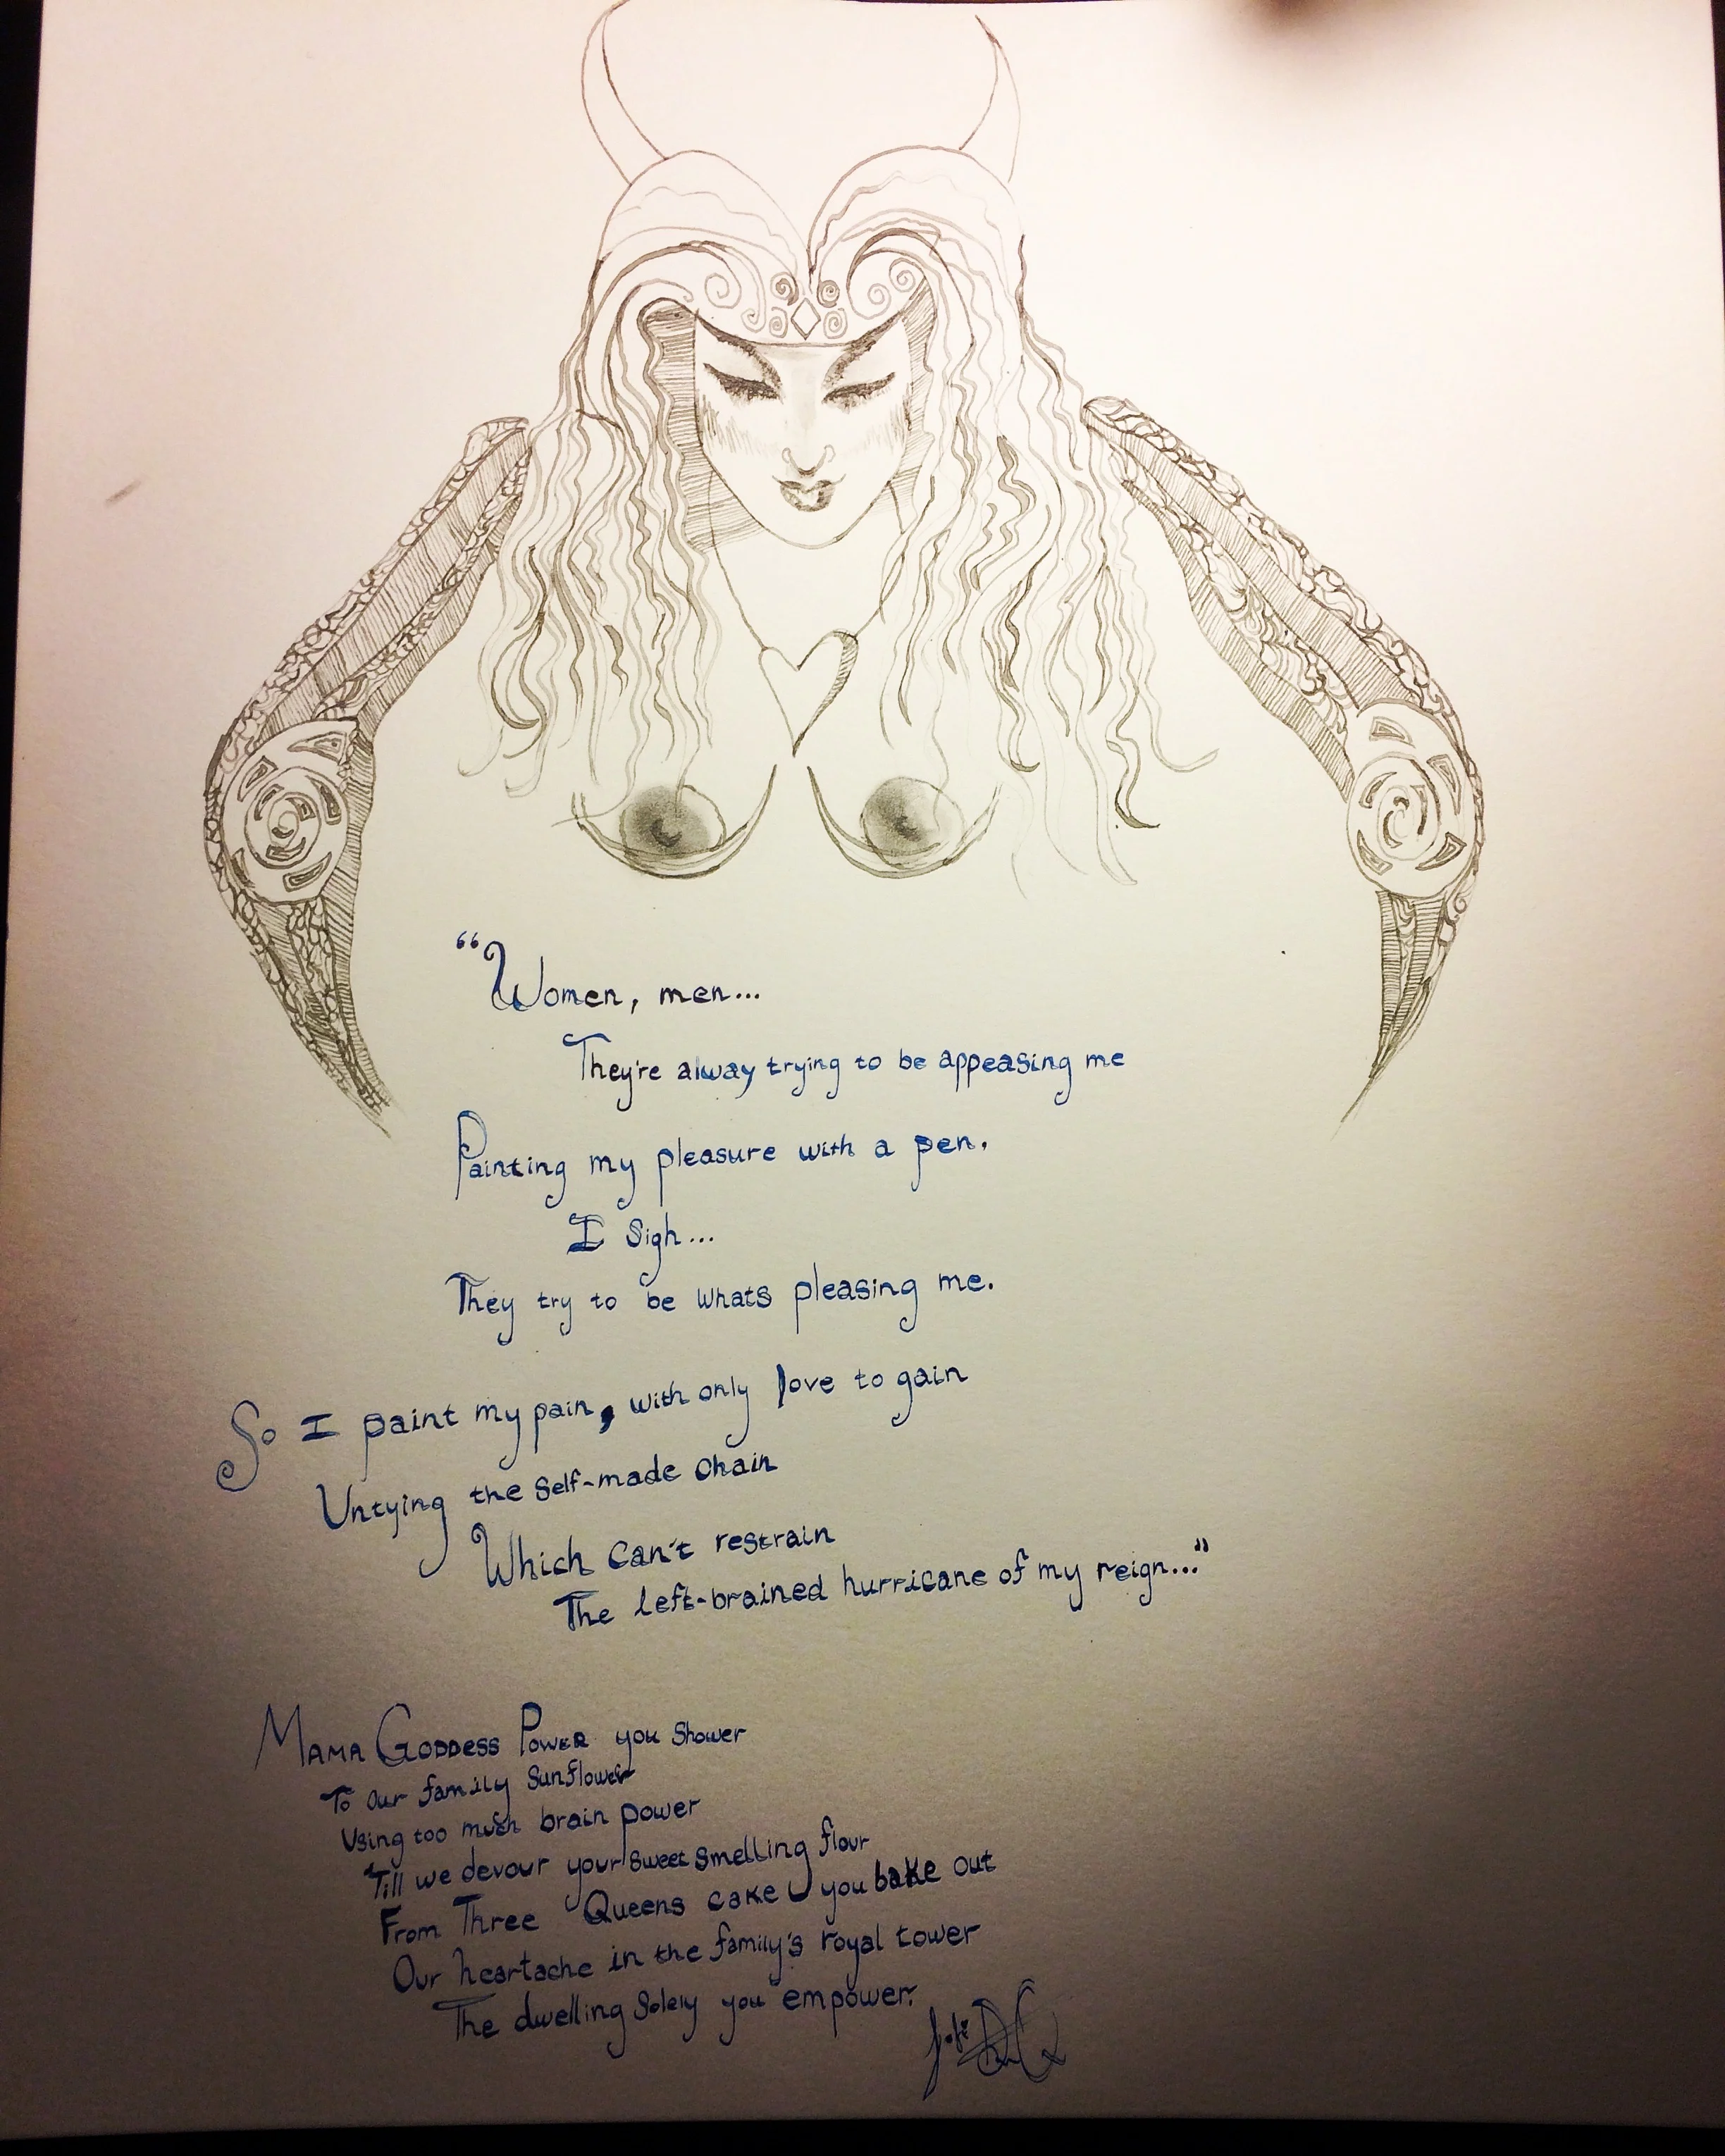 “Women, men...
They're alway trying to be appeasing me
Painting my pleasure with a pen.
I sigh...
They try to be whats pleasing me.
So I paint my pain, with only love to gain
Untying the self-made chain
Which can't restrain
The left-brained hurricane of my reign...”
Mama Goddess Power you shower
To our family sunflower
Using too much brain power
Till we devour your sweet smelling flour
From Three Queens cake you bake out
Our heartache in the family's royal tower
The dwelling solely you empower.